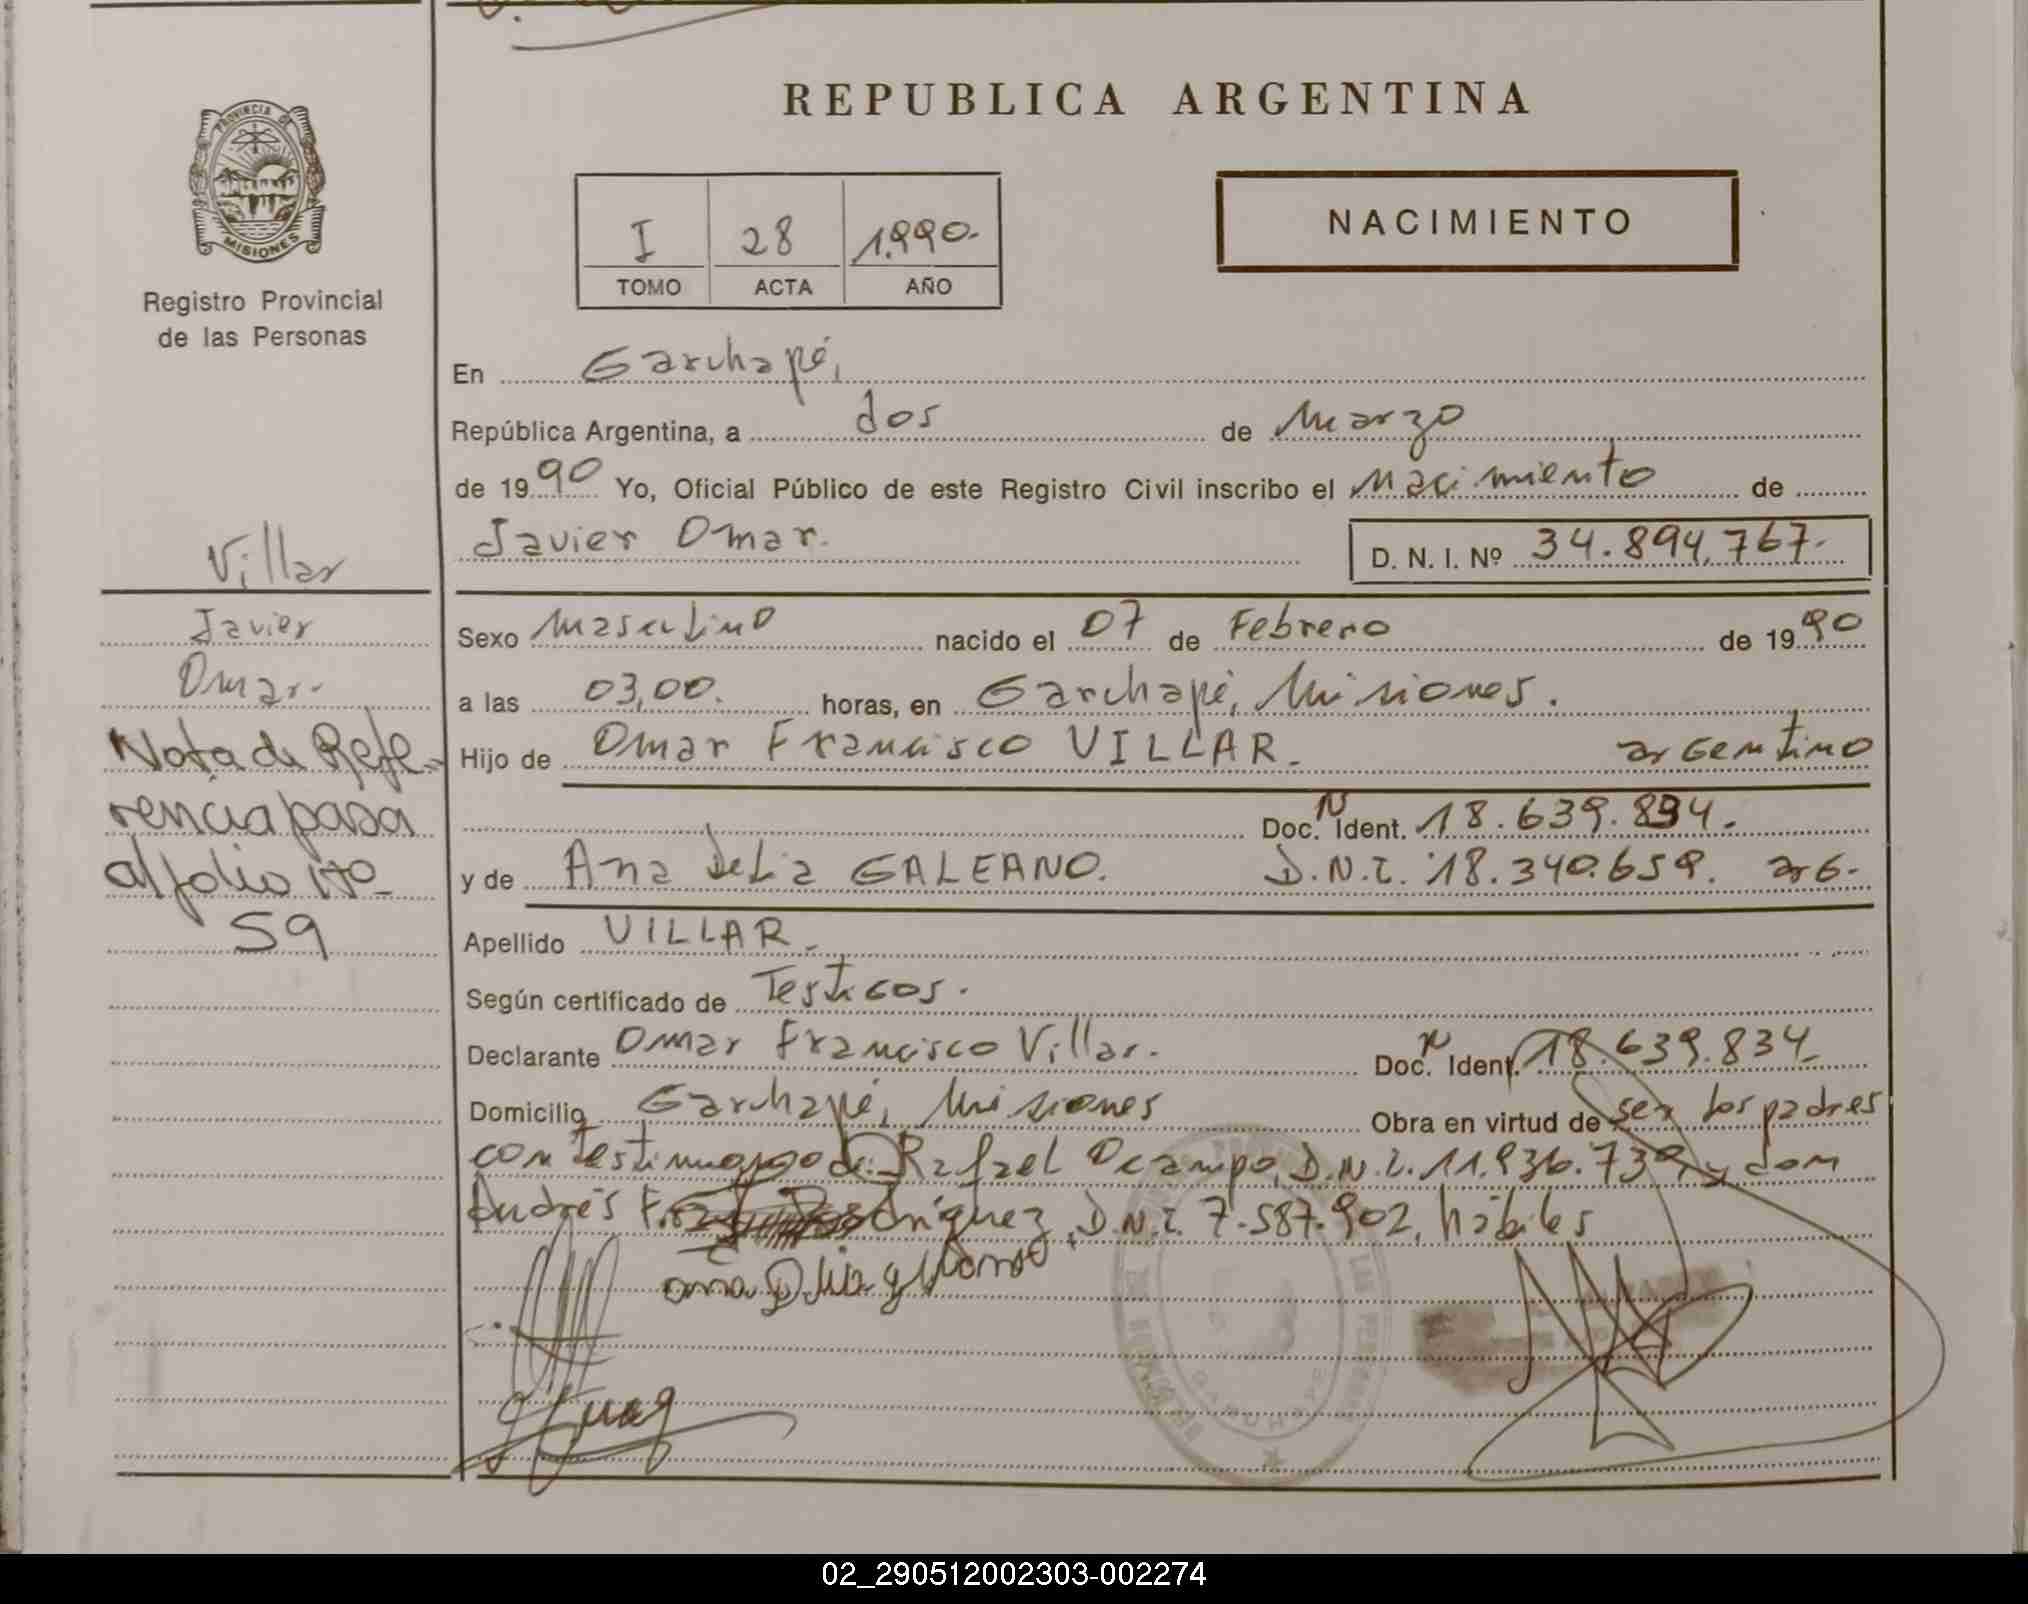 REPUBLICA ARGENTINA
PROVINCIA DE
MISIONES
Registro Provincial
de las Personas
I 28 1.990.-
TOMO ACTA AÑO
NACIMIENTO
En Garuhapé,
República Argentina, a dos de Marzo
de 1990 Yo, Oficial Público de este Registro Civil inscribo el Nacimiento de
Javier Omar. D. N. I. Nº 34.894.767.-
Villar
Javier
Omar.-
Nota de Refe-
rencia pasa
al folio Nº-
59
Sexo Masculino nacido el 07 de Febrero de 1990
a las 03,00. horas, en Garuhapé, Misiones.
Hijo de Omar Francisco VILLAR.- argentino
Doc. N Ident. 18.639.834.
y de Ana Delia GALEANO. D.N.I. 18.340.659. arg.-
Apellido VILLAR.-
Según certificado de Testigos.
Declarante Omar Francisco Villar.- Doc. N Ident. 18.639.834.-
Domicilio Garuhapé, Misiones Obra en virtud de ser los padres
con testimonio de: Rafael Ocampo, D.N.I. 11.936.739 y don
Andrés Rodríguez, D.N.I. 7.587.902, hábiles
02_290512002303-002274